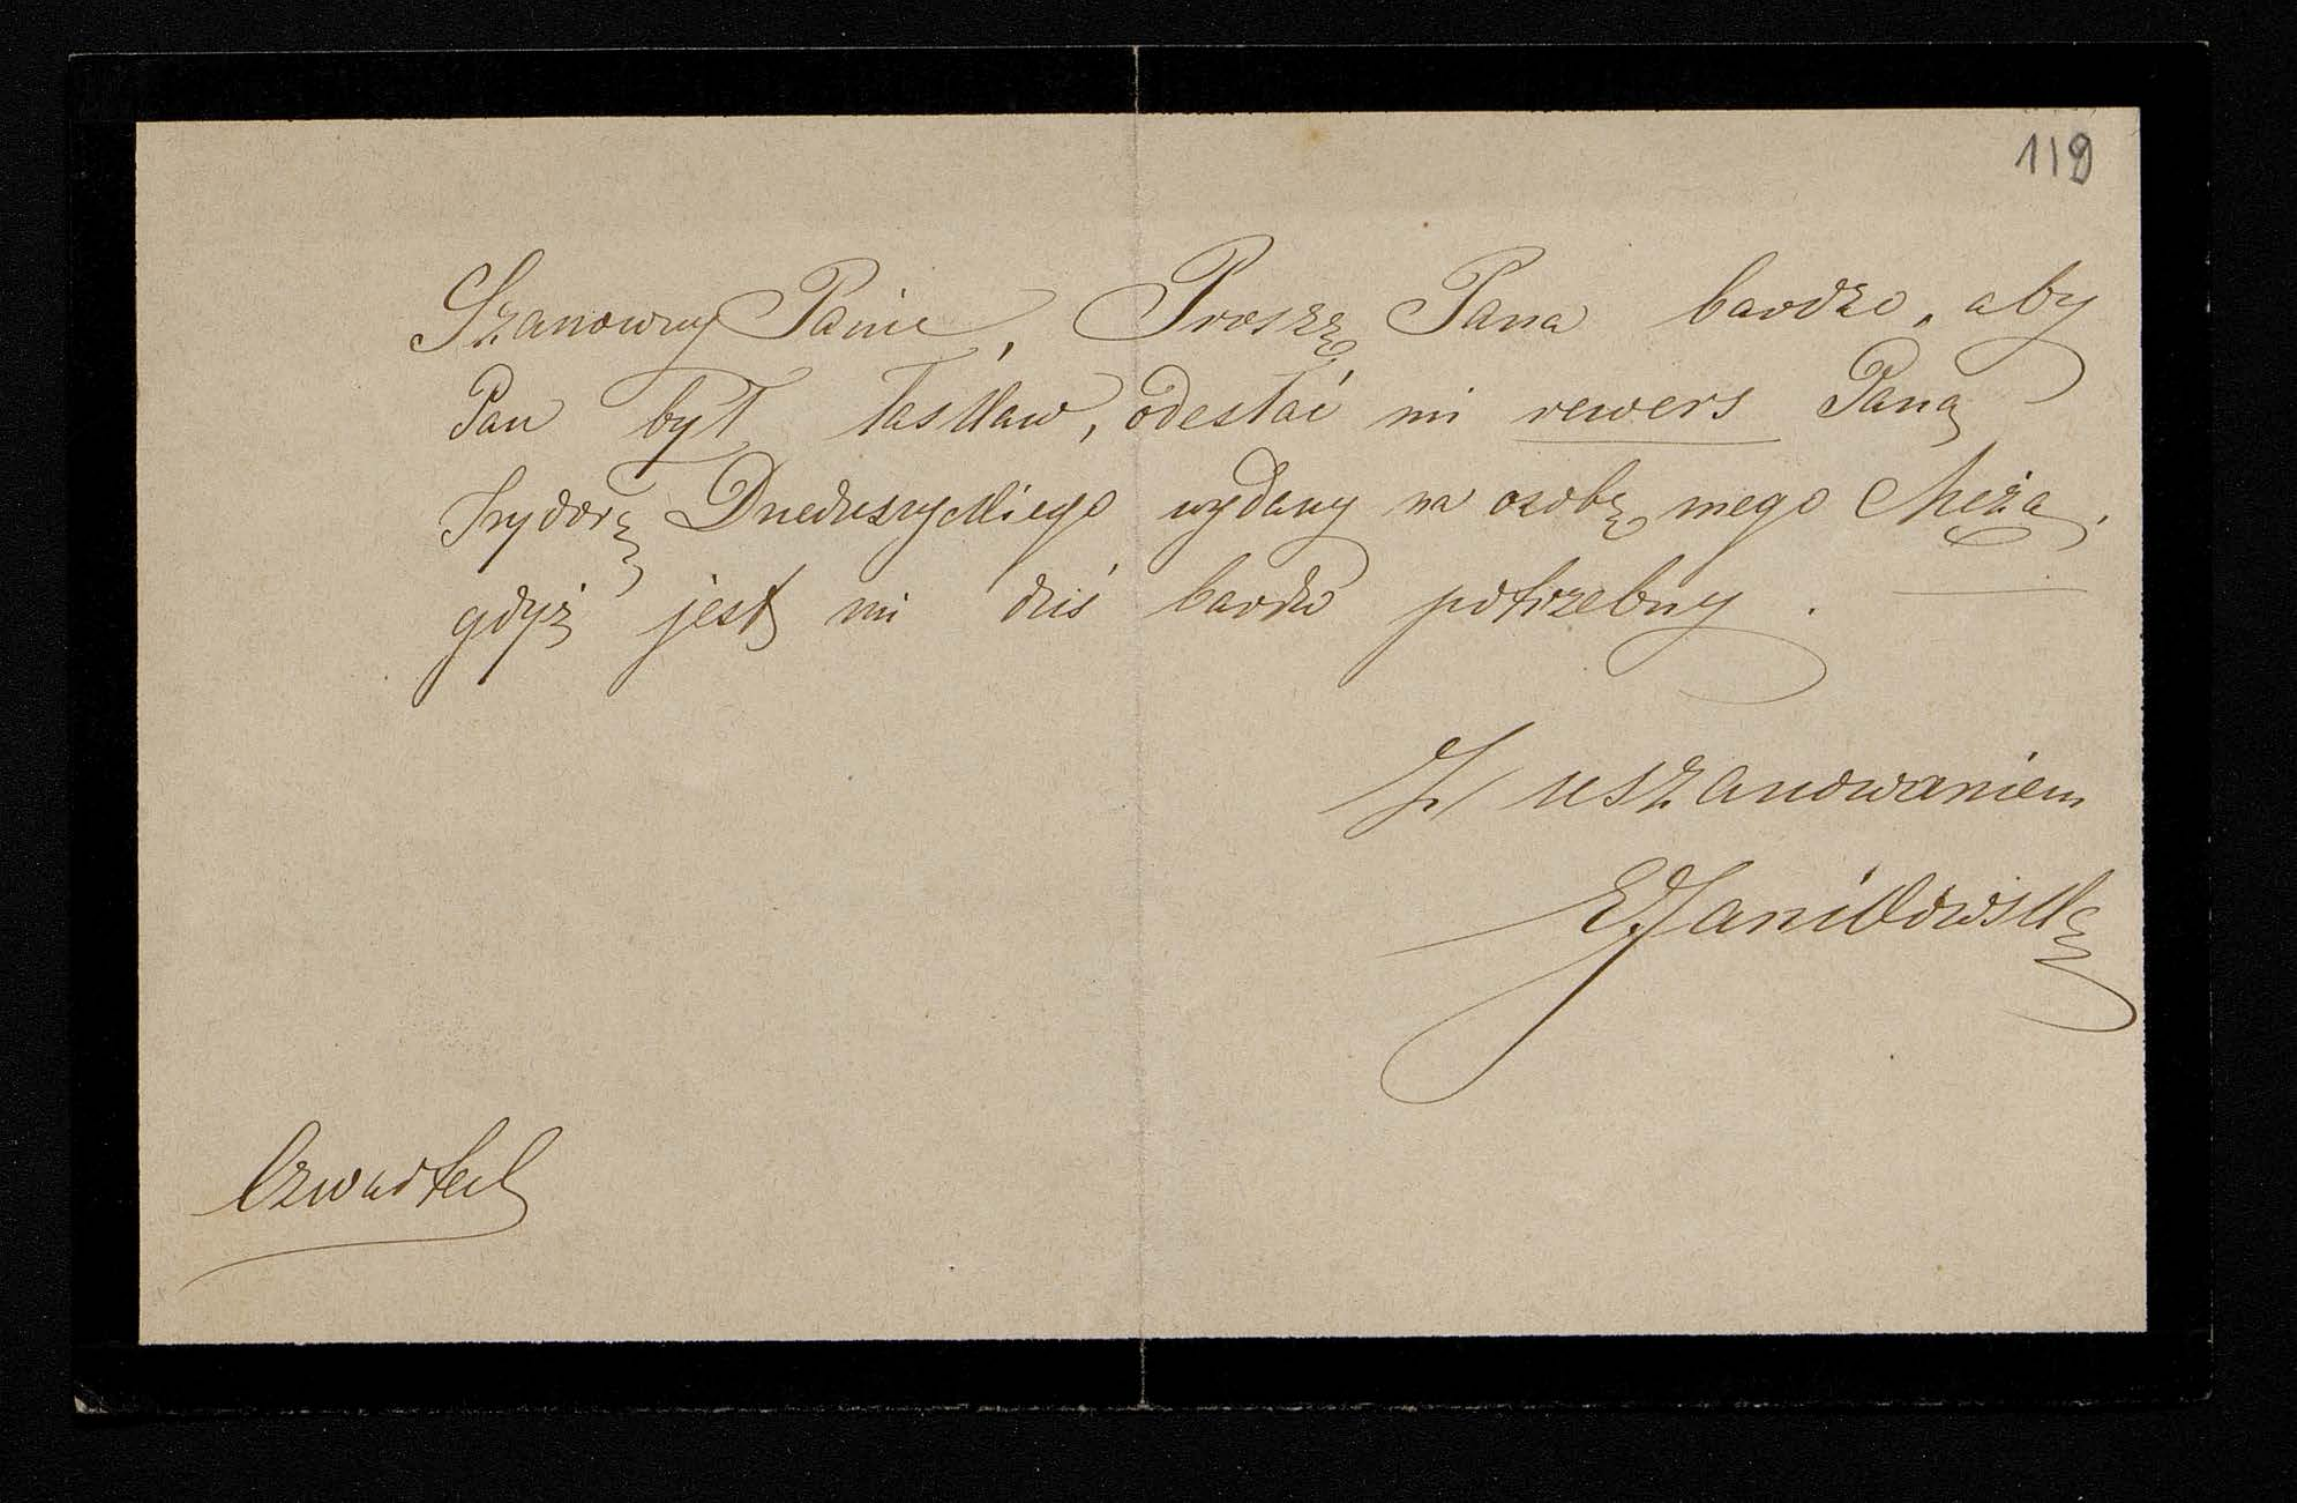 119
Szanowny Panie, Proszę Pana bardzo, aby
Pan był łaskaw, odesłać mi rewers Pana
Izydora Dzieduszyckiego wydany na osobę mego Męża,
gdyż jest mi dziś bardzo potrzebny.
Z uszanowaniem
EJanikowska
Czwartek